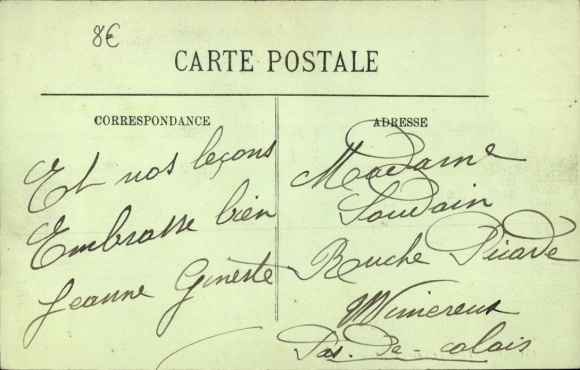 8€
CARTE POSTALE
CORRESPONDANCE
Et nos leçons
Embrasse bien
Jeanne Gineste
ADRESSE
Madame
Soudain
Ruche Picarde
Wimereux
Pas-de-calais